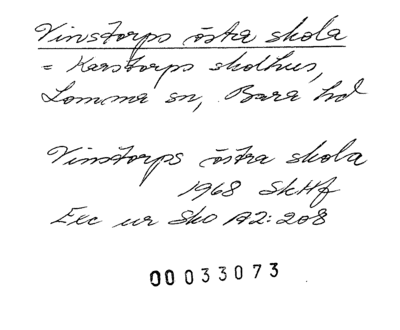 Vinstorps östra skola
= Karstorps skolhus,
Lomma sn, Bara hd
Vinstorps östra skola
1968 SkHf
Exc ur SkO A2:208
00033073